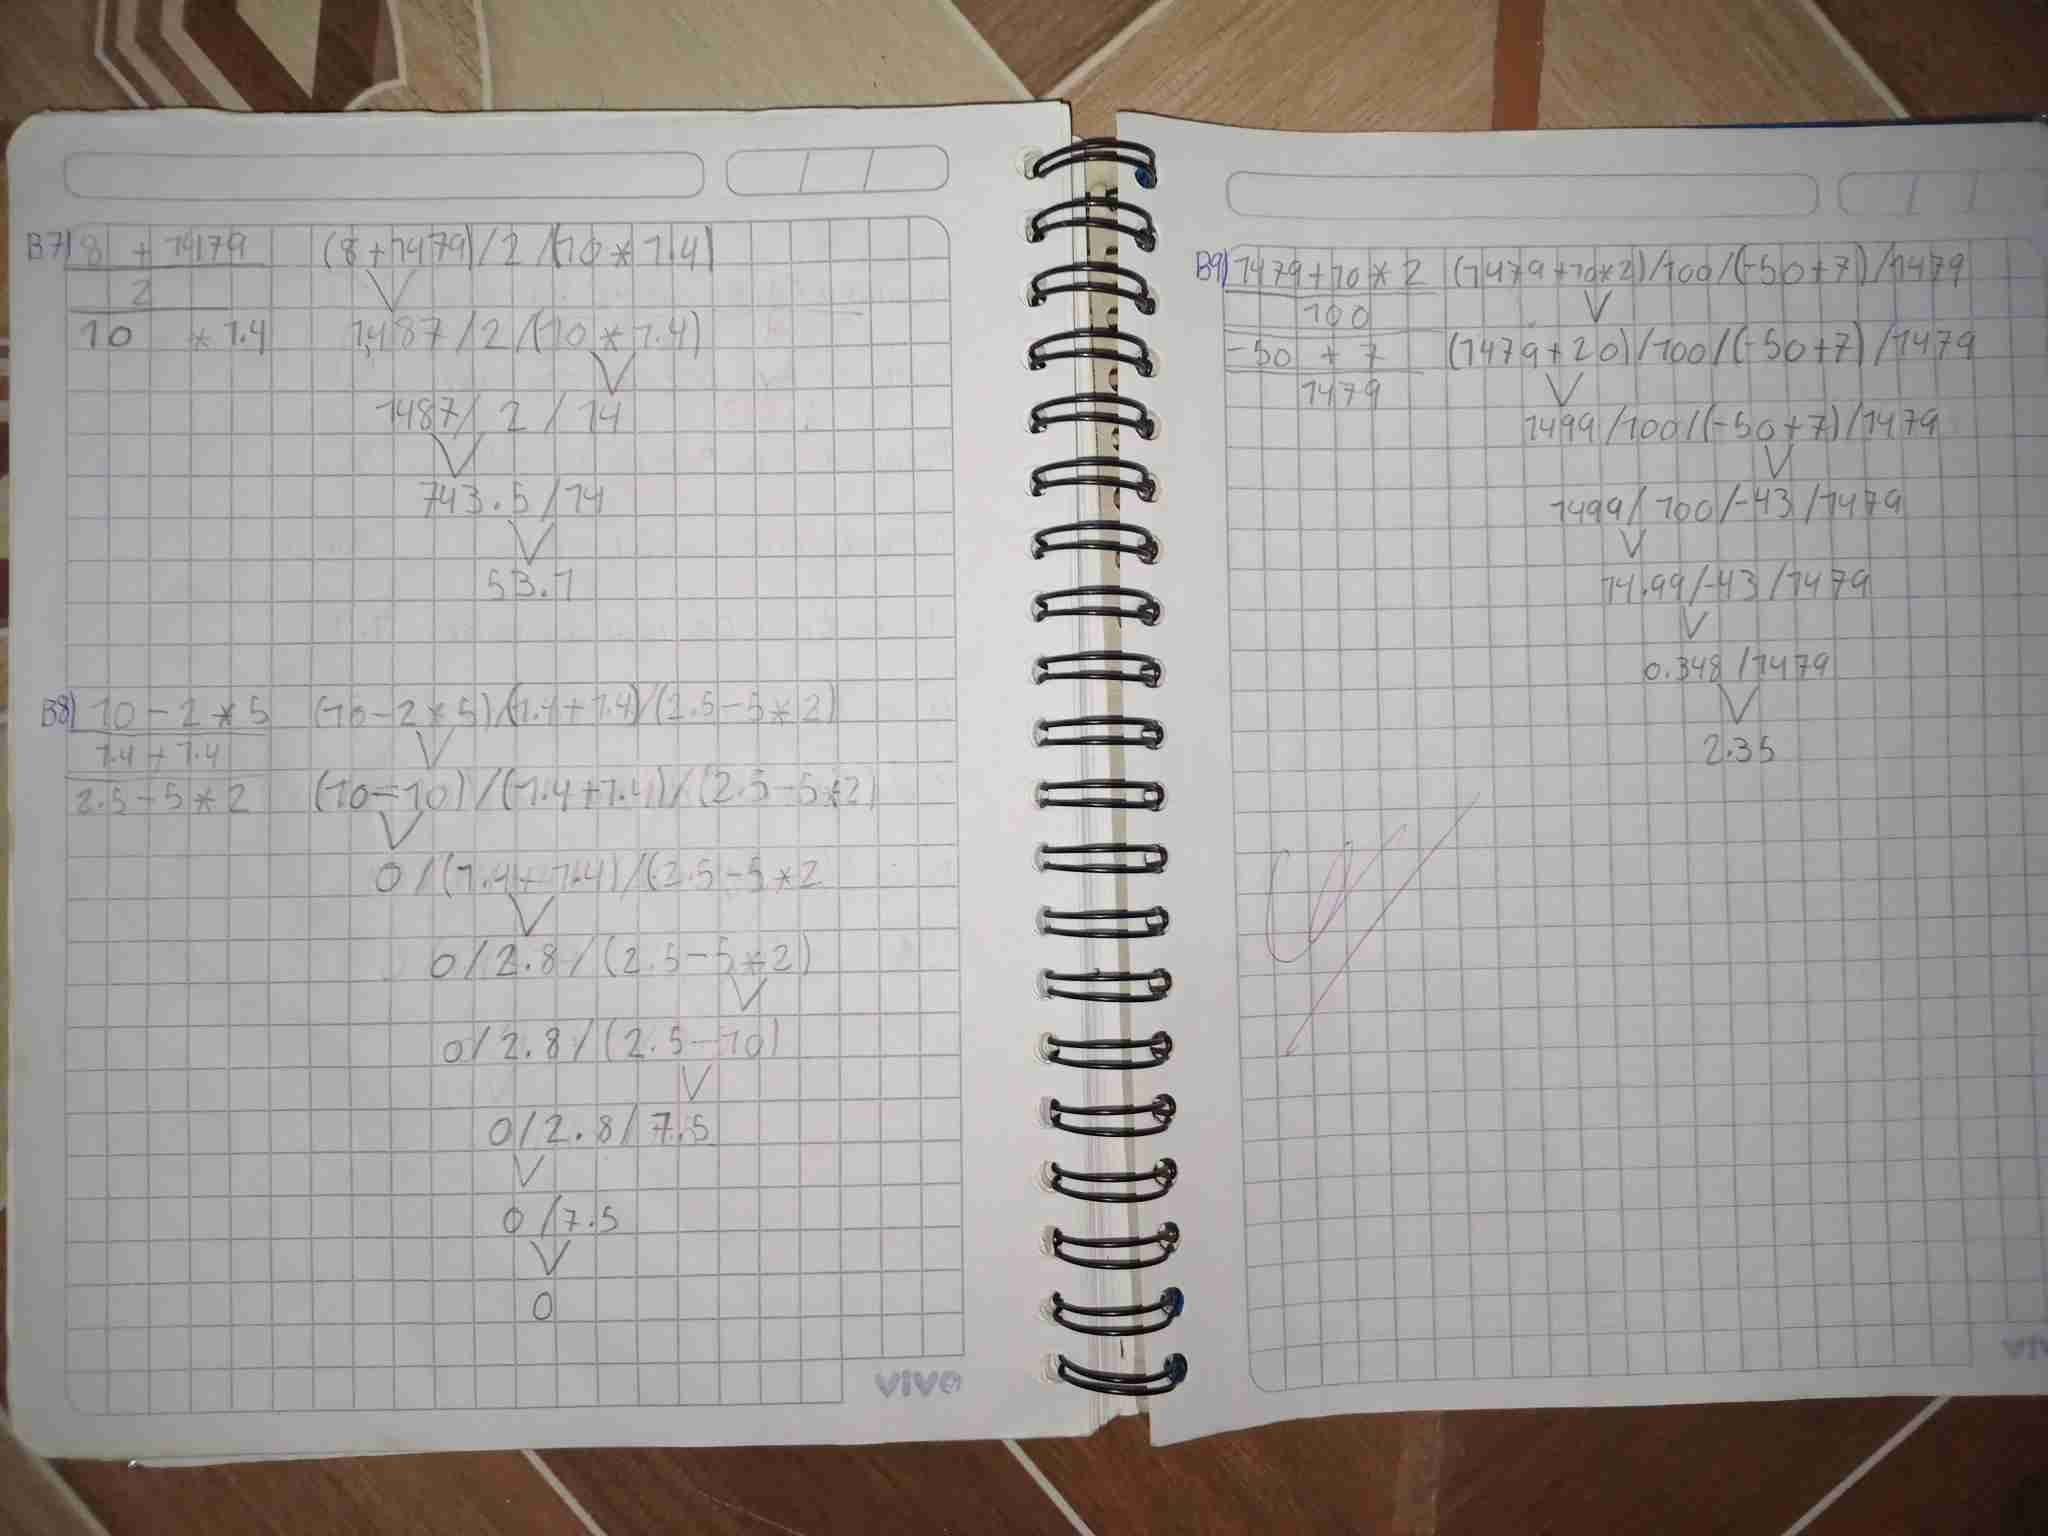 B7) 8 + 1479 (8+1479)/2/(10*1.4)
2
10 * 1.4 1487/2/(10*1.4)
1487/2/14
743.5/14
53.1
B8) 10-2*5 (10-2*5)/(1.4+1.4)/(2.5-5*2)
1.4+1.4
2.5-5*2 (10-10)/(1.4+1.4)/(2.5-5*2)
0/(1.4+1.4)/(2.5-5*2
0/2.8/(2.5-5*2)
0/2.8/(2.5-10)
0/2.8/7.5
0/7.5
0
vivo
B9) 1479+10*2 (1479+10*2)/100/(-50+7)/1479
100
-50 + 7 (1479+20)/100/(-50+7)/1479
1479
1499/100/(-50+7)/1479
1499/100/-43/1479
14.99/-43/1479
0.348/1479
2.35